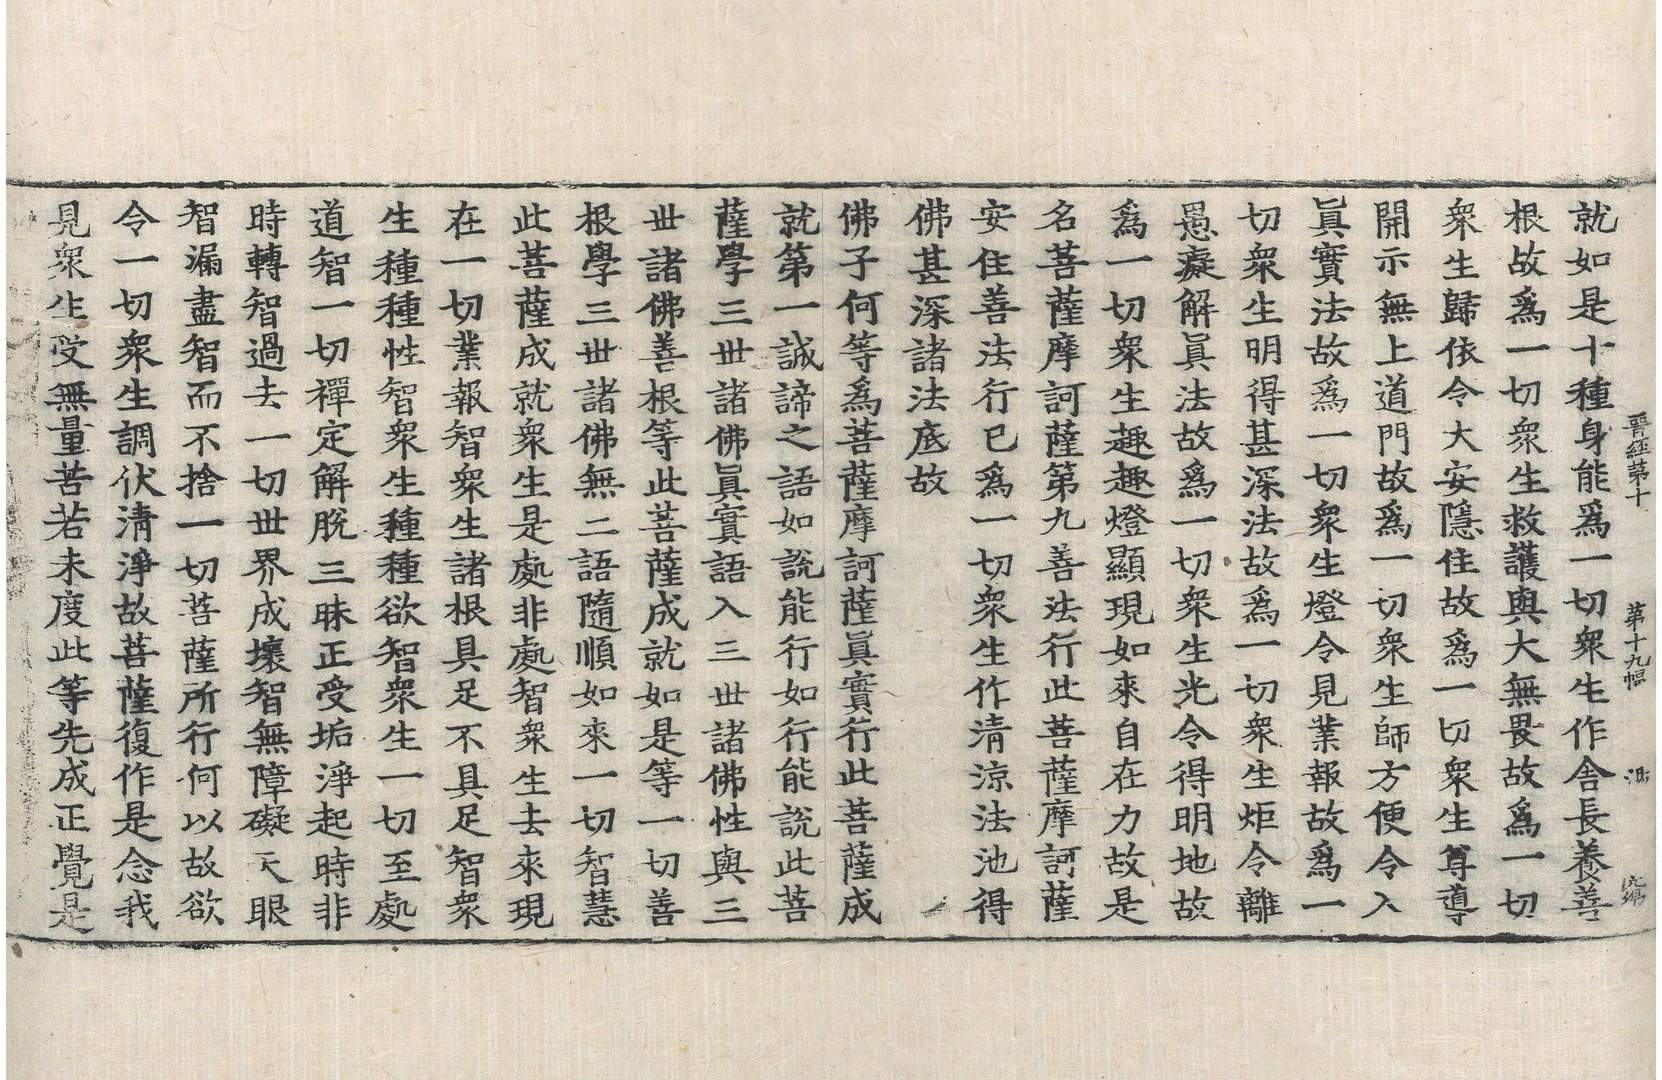 晋經第十 第十九幅
就如是十種身能爲一切衆生作舎長養善
根故爲一切衆生救護與大無畏故爲一切
衆生歸依令大安隱住故爲一切衆生尊導
開示無上道門故爲一切衆生師方便令入
眞實法故爲一切衆生燈令見業報故爲一
切衆生明得甚深法故爲一切衆生炬令離
愚癡解眞法故爲一切衆生光令得明地故
爲一切衆生趣趣燈顯現如來自在力故是
名菩薩摩訶薩第九善法行此菩薩摩訶薩
安住善法行已爲一切衆生作清涼法池得
佛甚深諸法底故
佛子何等爲菩薩摩訶薩眞實行此菩薩成
就第一誠諦之語如說能行如行能說此菩
薩學三世諸佛眞實語入三世諸佛性與三
世諸佛善根等此菩薩成就如是等一切善
根學三世諸佛無二語隨順如來一切智慧
此菩薩成就衆生是處非處智衆生去來現
在一切業報智衆生諸根具足不具足智衆
生種種性智衆生種種欲智衆生一切至處
道智一切禪定解脫三昧正受垢淨起時非
時轉智過去一切世界成壞智無障礙天眼
智漏盡智而不捨一切菩薩所行何以故欲
令一切衆生調伏清淨故菩薩復作是念我
見衆生受無量苦若未度此等先成正覺是